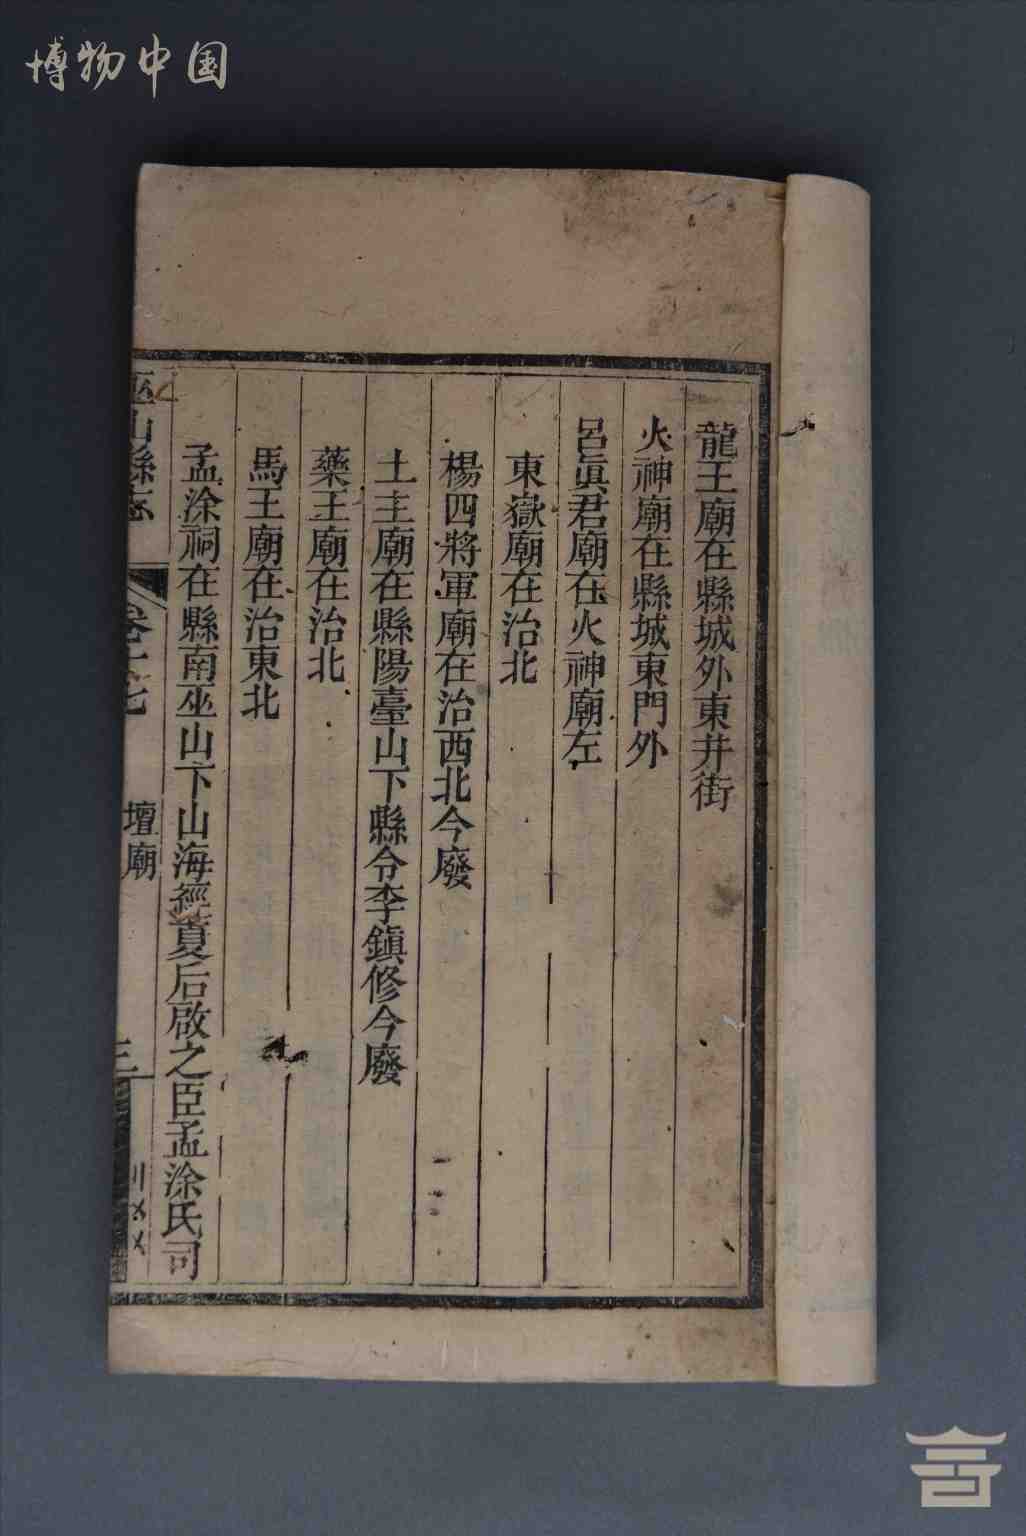 博物中国
龍王廟在縣城外東井街
火神廟在縣城東門外
呂眞君廟在火神廟左
東嶽廟在治北
楊四將軍廟在治西北今廢
土主廟在縣陽臺山下縣令李鎮修今廢
藥王廟在治北
馬王廟在治東北
孟涂祠在縣南巫山下山海經夏后啟之臣孟涂氏司
巫山縣志
卷十七
壇廟
三